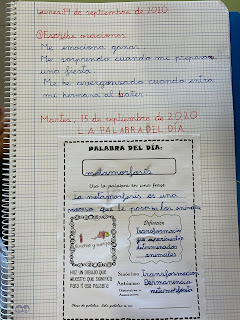 Lunes 14 de septiembre de 2020
Escribe oraciones
Me emociona ganar.
Me sorprendo cuando me preparan
una fiesta
Me he avergonzado cuando entra
mi hermana al báter
Martes, 15 de septiembre de 2020
LA PALABRA DEL DÍA
PALABRA DEL DÍA:
metamorfosis
Usa la palabra en una frase
La metamorfosis es una
que le pasa a los animales
Definición
transformación
que experimentan
determinados
animales
HAZ UN DIBUJO QUE
MUESTRE QUE SIGNIFICA
PARA TI ESA PALABRA
Sinónimo: transformación
Antónimo: